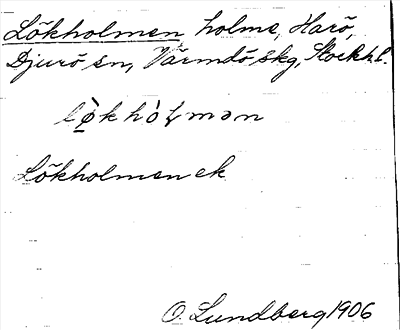 Lökholmen holme, Harö,
Djurö sn, Värmdö skg, Stockh. l.
lø̀khòɫmən
Lökholmen ek
O. Lundberg 1906